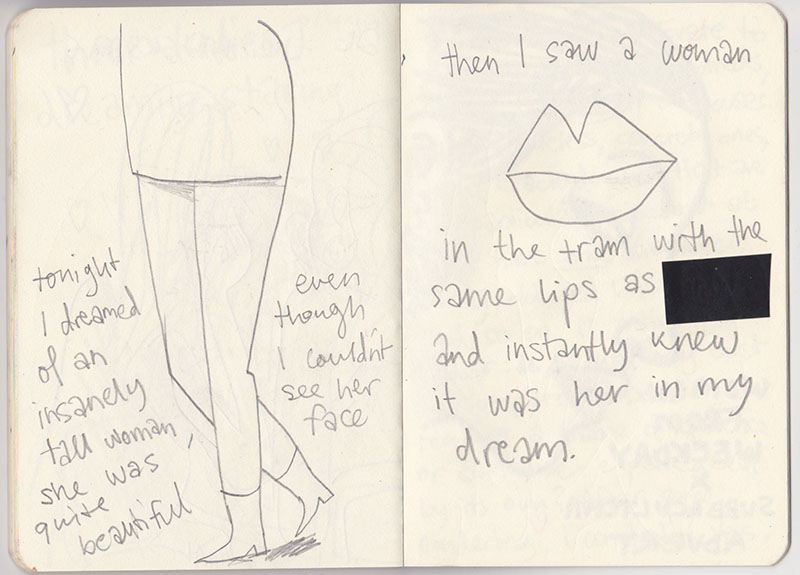 tonight
I dreamed
of an
insanely
tall woman,
she was
quite
beautiful
even
though
I couldn't
see her
face
then I saw a woman
in the tram with the
same lips as
and instantly knew
it was her in my
dream.